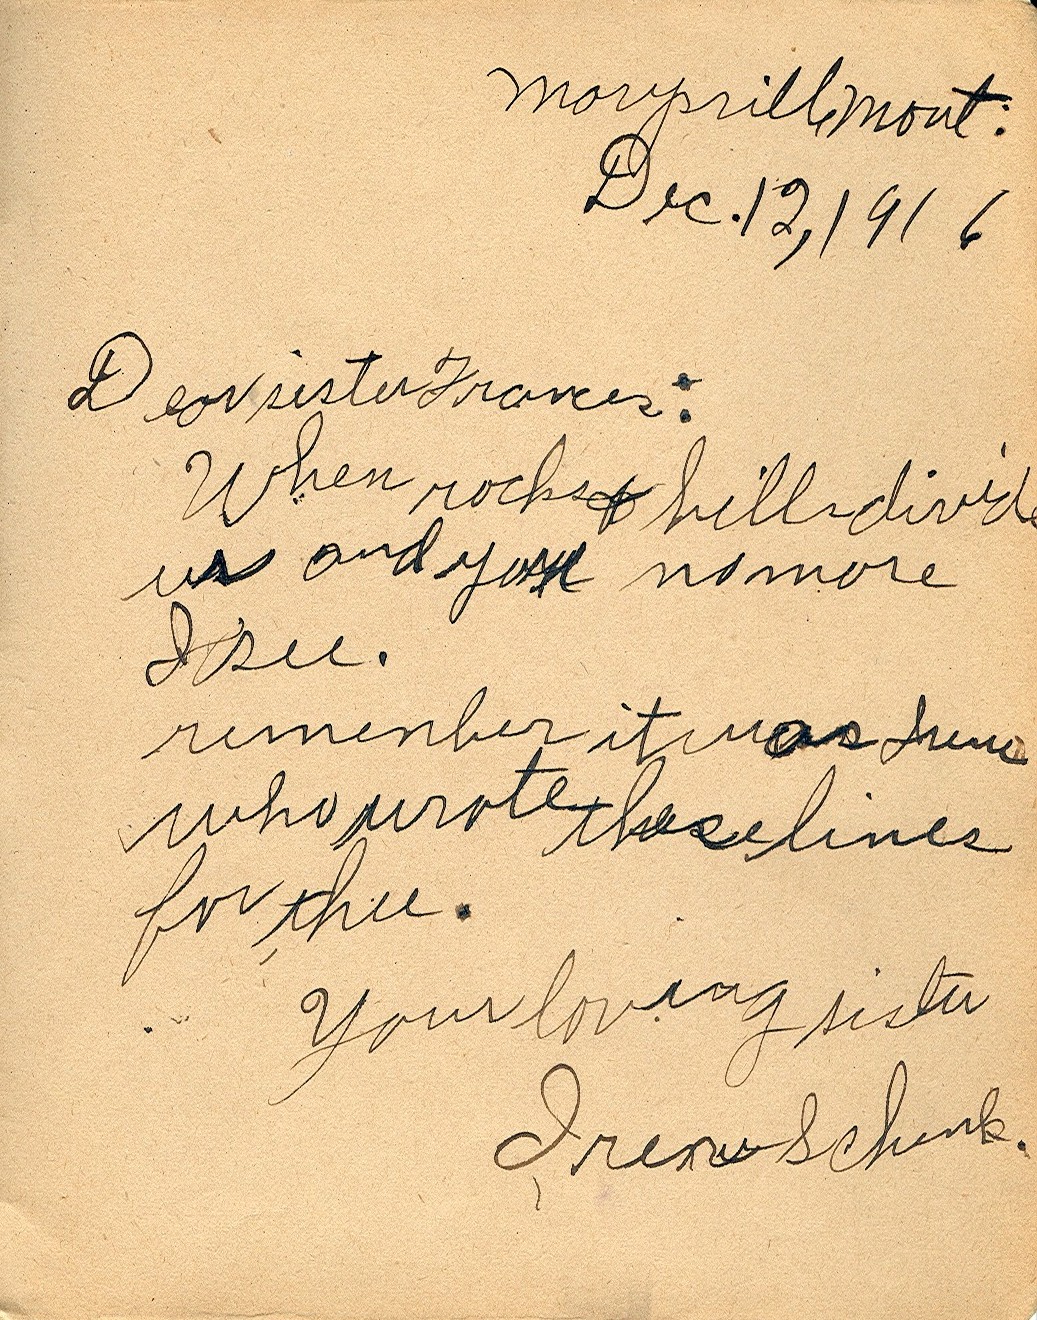 Marysville, Mont.
Dec. 12, 1916
Dear sister Frances:
When rocks & hills divide
us and you no more
I see.
remember it was Irene
who wrote these lines
for thee.
Your loving sister
Irene Schenk.